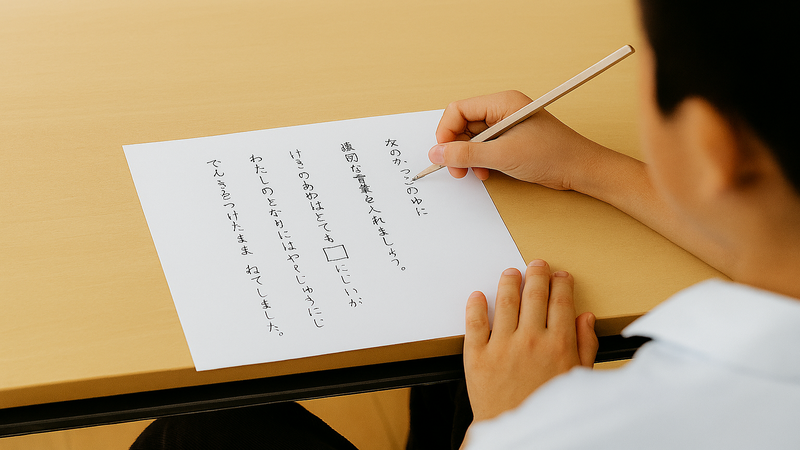 なのかっこのゆに
な言葉を入れましょう。
けきのあめはとても□にじいが
わたしのとなりにはやじゅうにじ
でんきをつけたまま ねてしました。